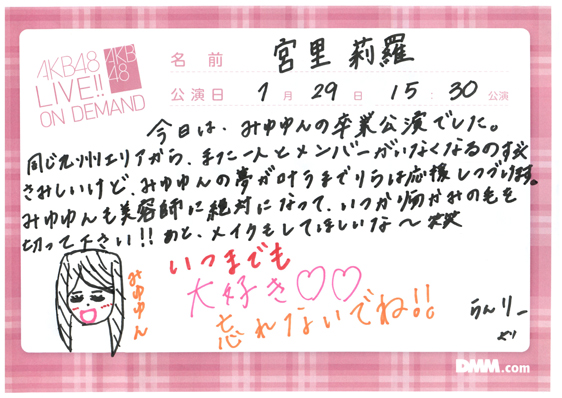 AKB48
LIVE!!
ON DEMAND
AKB
48
名前 宮里莉羅
公演日 1月29日 15:30公演
今日は、みゆゆんの卒業公演でした。
同じ九州エリアから、また一人とメンバーがいなくなるのすが
さみしいけど、みゆゆんの夢が叶うまでりらは応援しつづけます。
みゆゆんも美容師に絶対になって、いつかりらのかみの毛を
切って下さい!! あと、メイクもしてほしいな〜
いつまでも
大好き♡♡
忘れないでね!!
みゆゆん
らんりー
DMM.com